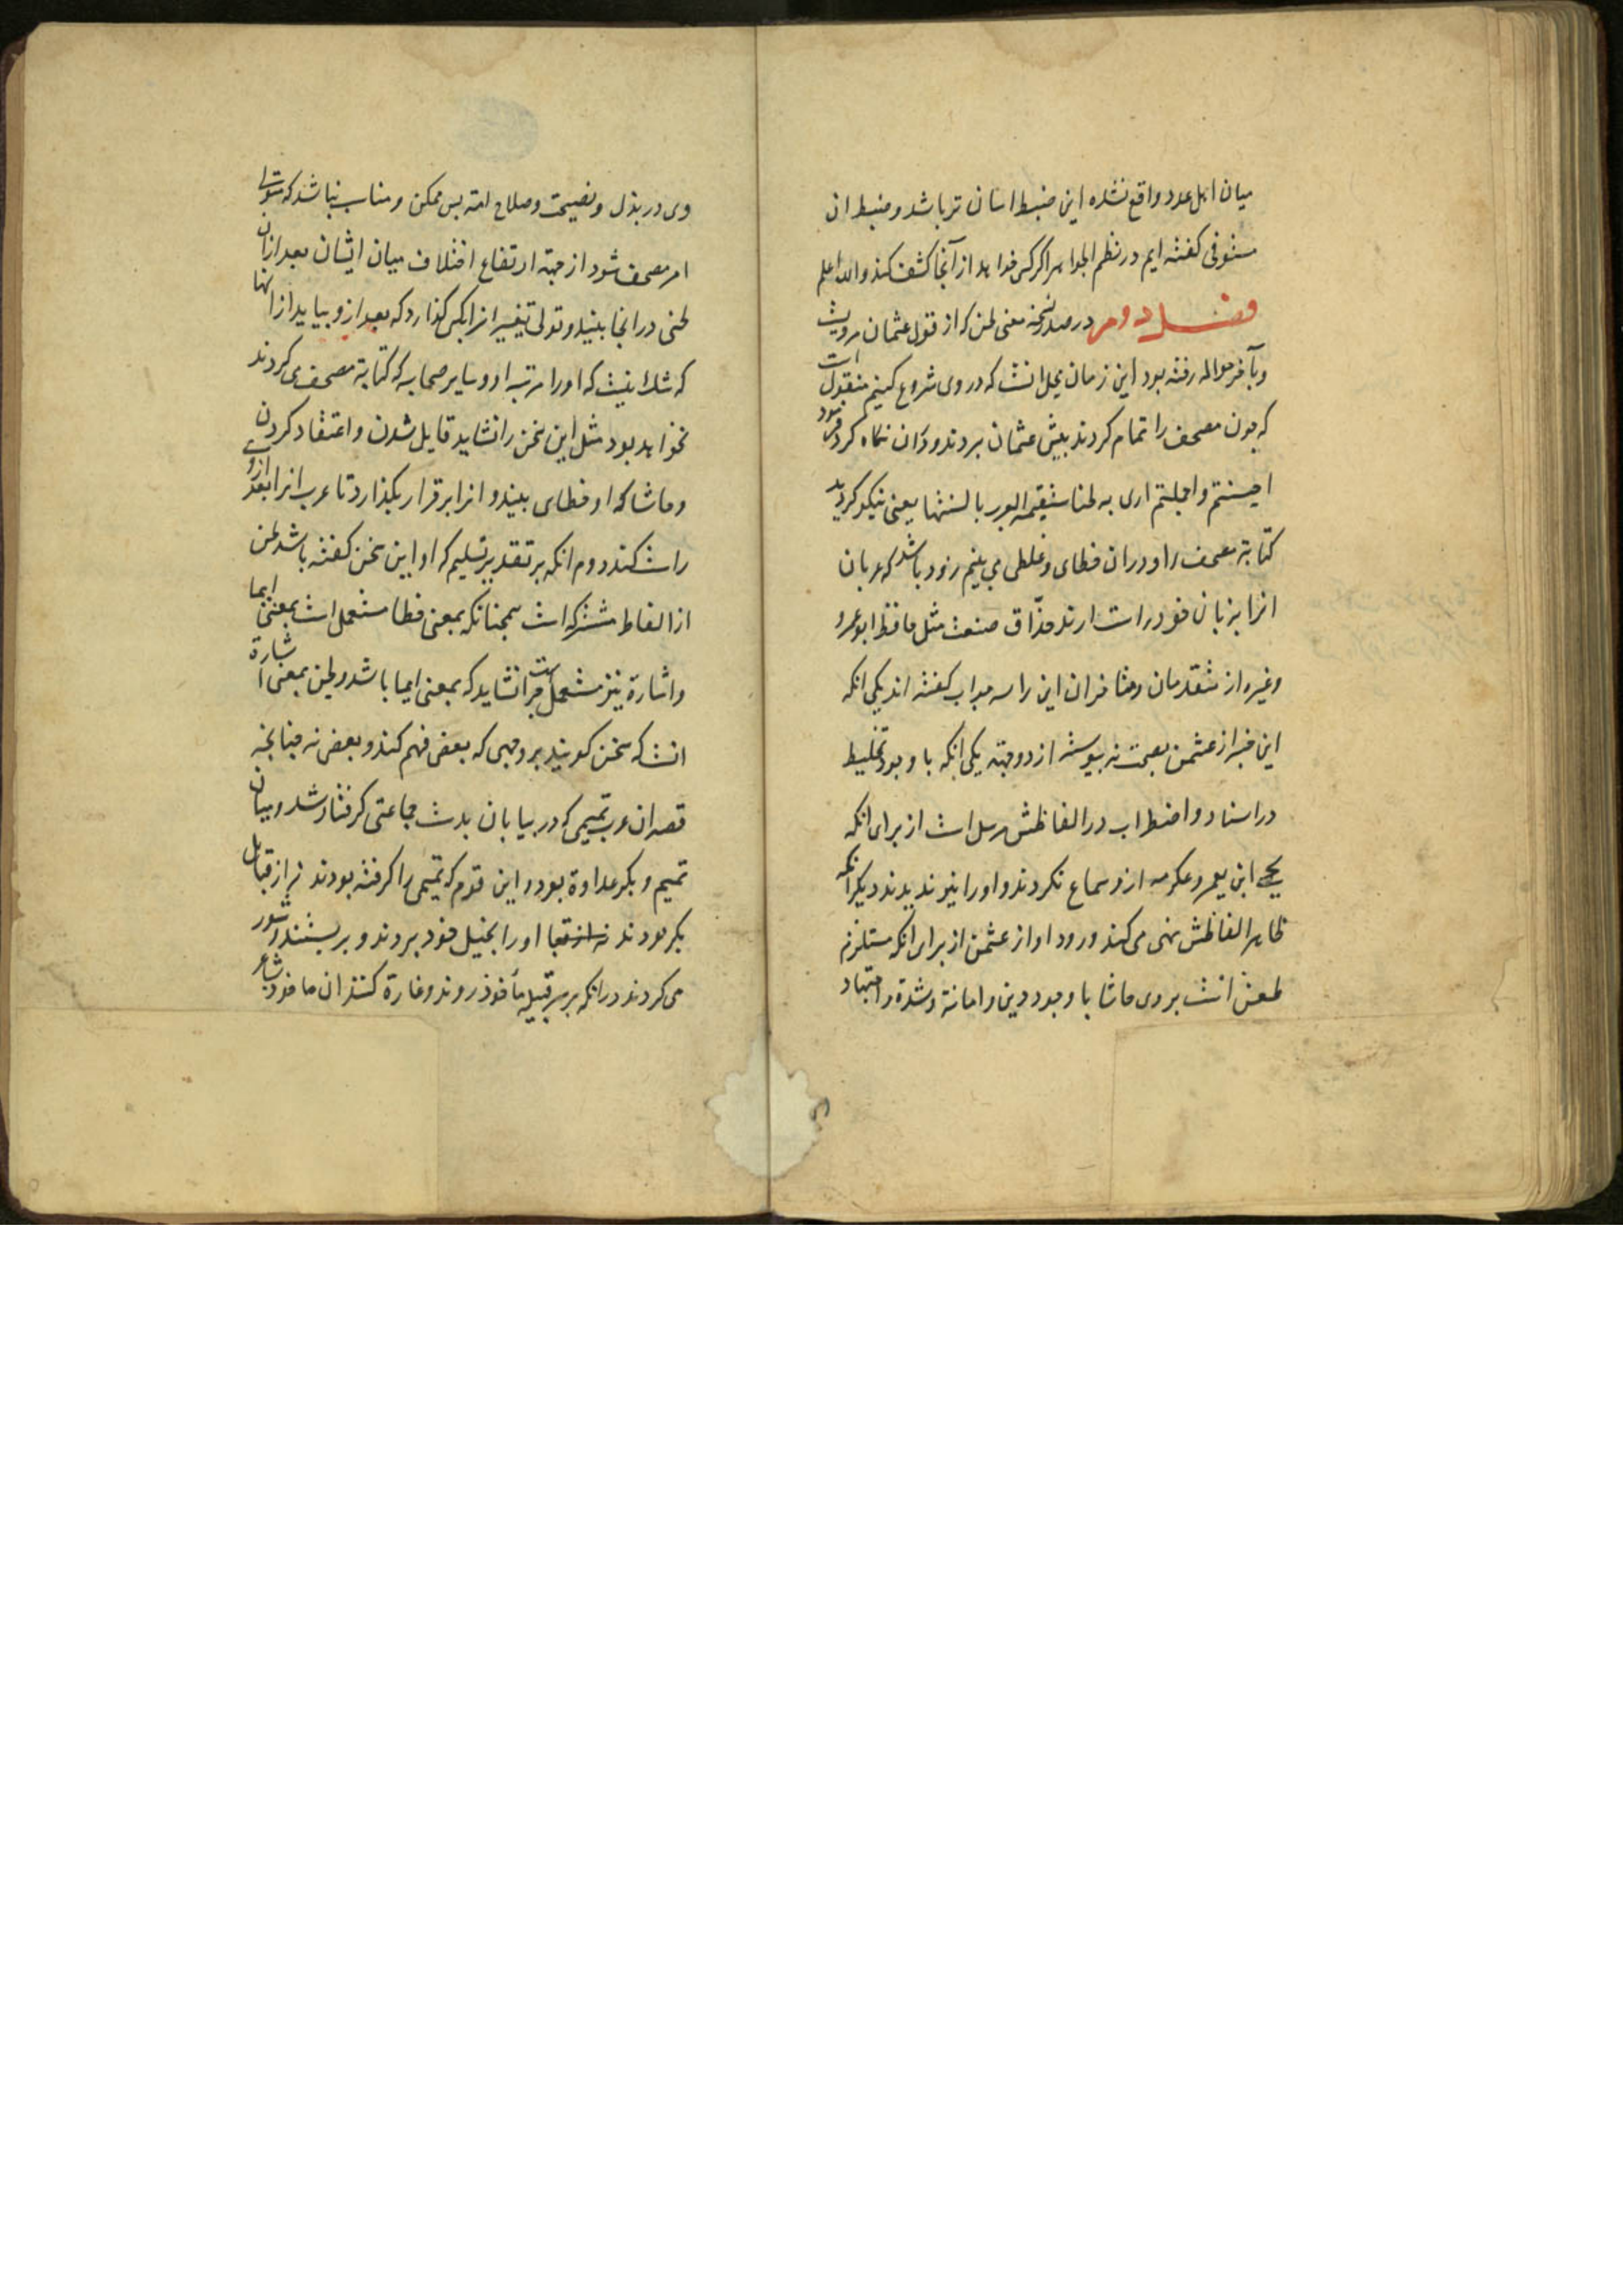 میان اهل عدد واقع نشده این ضبط اسان تر باشد و ضبط ان
مستوفی کفته ایم در نظم الجواهر اکر کسی خواهد از آنجا کشف کند والله اعلم
فصل دوم در معنی لحن که از قول عثمان مرویست
وبآخر حواله رفته بود این زمان محل انست که در وی شروع کنیم منقول است
که چون مصحف را تمام کردند پیش عثمان بردند ودران نکاه کرد فرمود
احسنتم واجملتم اری به لحنا ستقیمه العرب بالسنتها یعنی نیکو کردید
کتابة مصحف را ودران خطای وغلطی می بینم زود باشد که عربان
انرا بزبان خود راست ارند حذّاق صنعت مثل حافظ ابو عمرو
وغیره از متقدمان ومتاخران این را سه جواب کفته اند یکی انکه
این خبر از عثمن بصحت نه پیوسته از دو جهة یکی انکه با وجود تخلیط
در اسناد واضطراب در الفاظش مرسل است از برای انکه
یحیی ابن یعمر وعکرمه ازو سماع نکردند واورا نیز ندیدند دیکر انکه
ظاهر الفاظش نهی می کند ورود او از عثمن از برای انکه مستلزم
طعن انست بروی حاشا با وجود دین وامانة وشدة واجتهاد
وی در بذل ونصیحت وصلاح امة بس ممکن ومناسب نباشد که متولی
امر مصحف شود از جهة ارتفاع اختلاف میان ایشان بعد ازان
لحنی در انجا بیند وتولی تغییر انرا بکسی کذارد که بعد ازو بیاید از انها
که شک نیست که اورا مرتبه او وسایر صحابه که کتابة مصحف می کردند
نخواهد بود مثل این سخن را نشاید قایل شدن واعتقاد کردن
وحاشا که او خطای بیند وانرا برقرار بکذارد تا عرب انرا بعد ازوی
راست کند دوم انکه بر تقدیر تسلیم که او این سخن کفته باشد لحن
از الفاظ مشترکه است همچنانکه بمعنی خطا مستعمل است بمعنی ایما
واشارة نیز مستعمل است چرا نشاید که بمعنی ایما باشد ولحن بمعنی اشارة
انست که سخن کویند بر وجهی که بعضی فهم کند وبعضی نه چنانچه
قصه ان عرب تمیمی که در بیابان بدست جماعتی کرفتار شد ومیان
تمیم وبکر عداوة بود واین قوم که تمیمی را کرفته بودند نه از قبایل
بکر بودند اورا بخیل خود بردند وبربستند ومشور
می کردند در انکه بر سر قبیله مأخوذ روند وغارة کنند ان ماخوذ شاعر